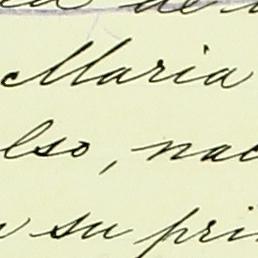 Maria
lso, nac
su pri